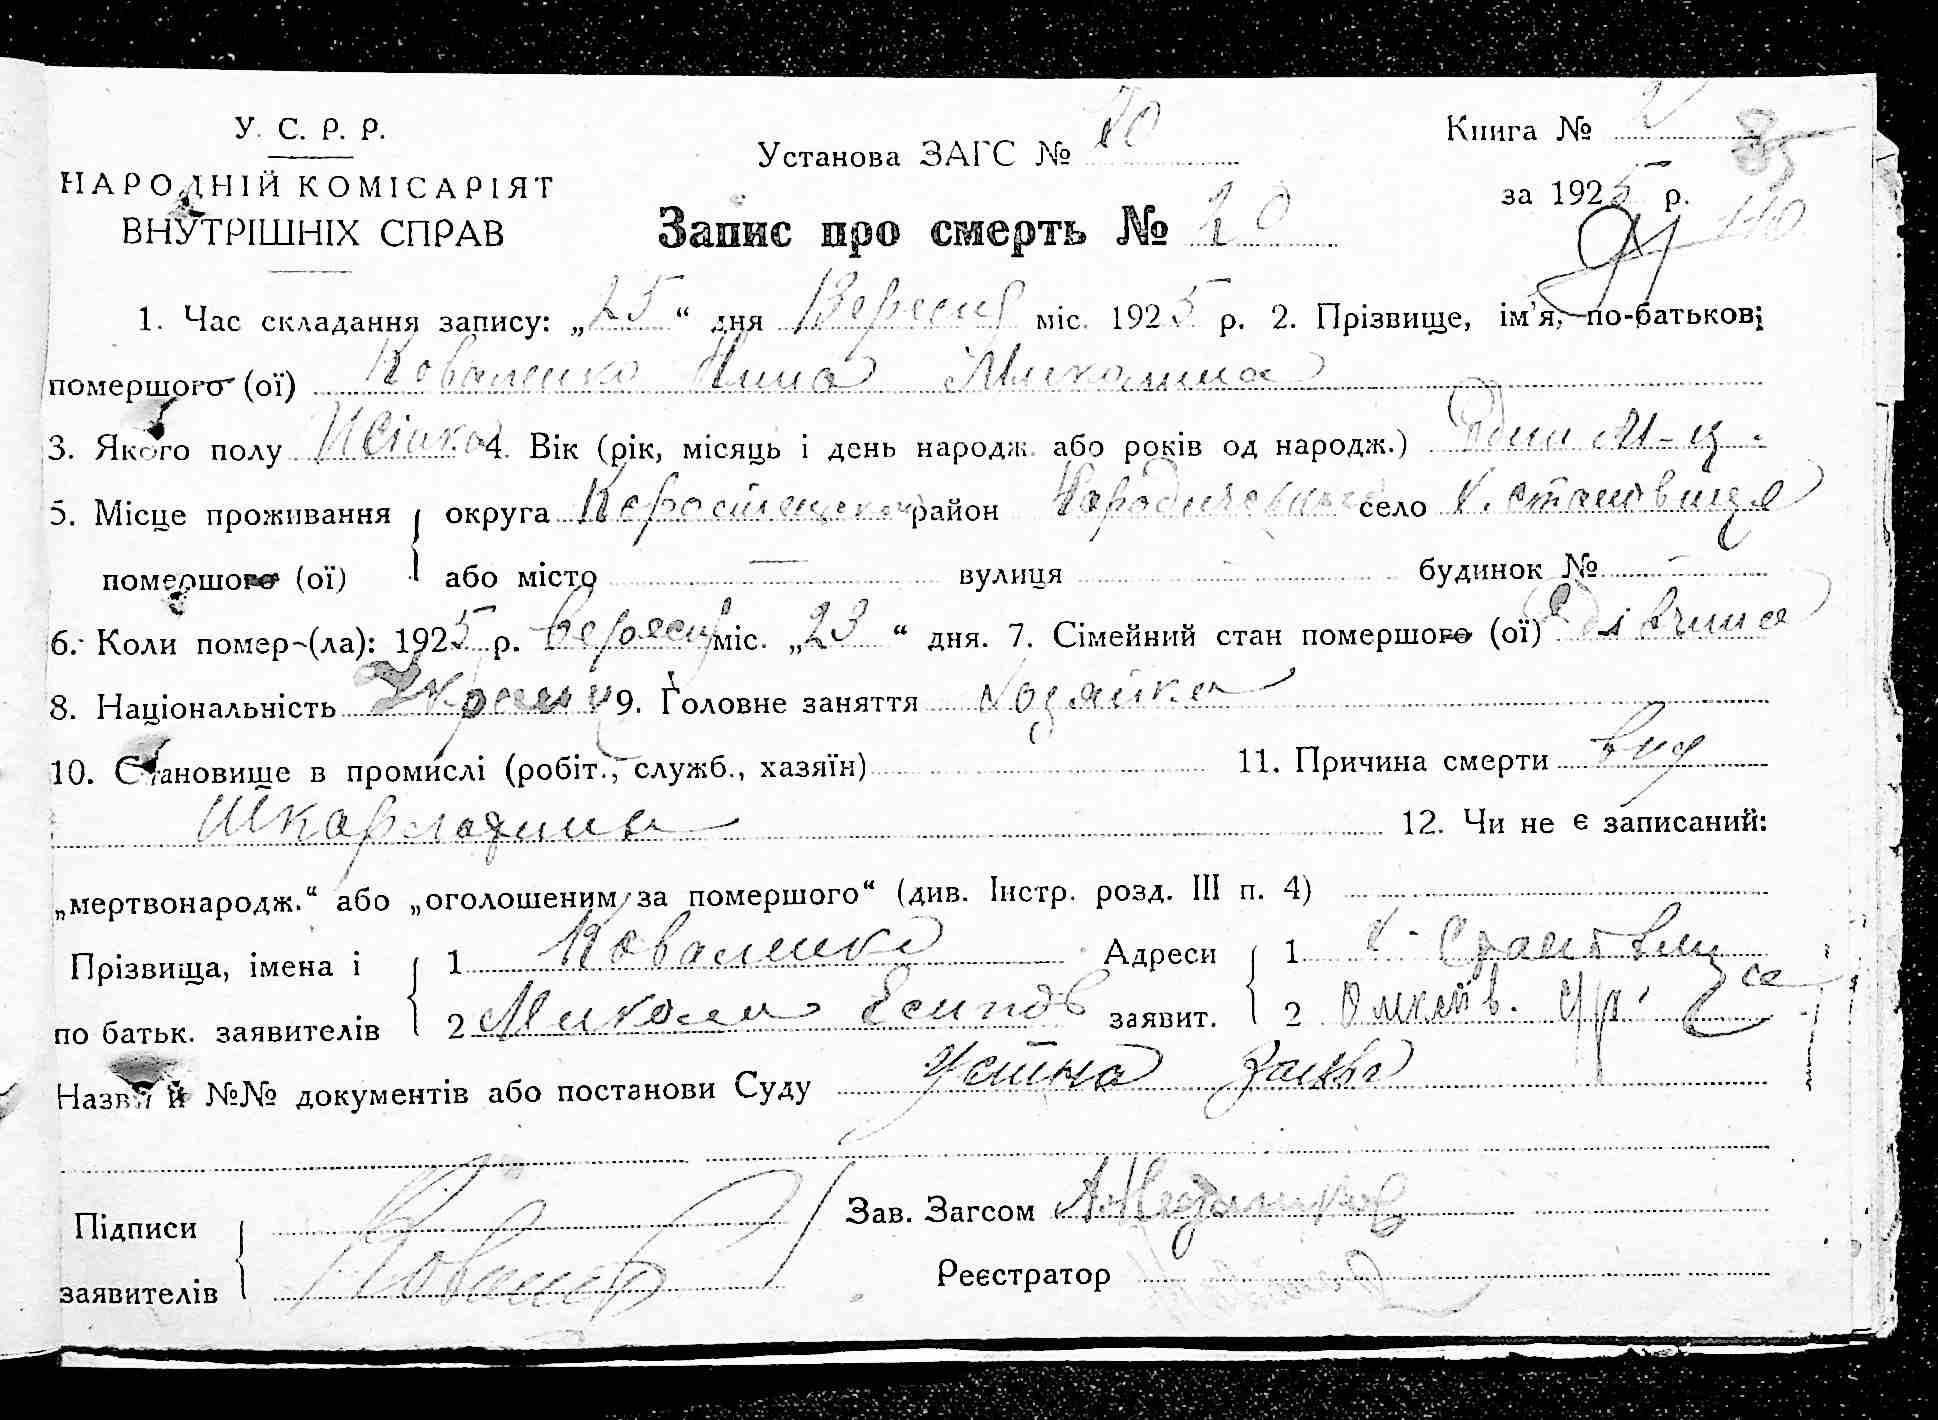 У. С. Р. Р.
НАРОДНІЙ КОМІСАРІЯТ
ВНУТРІШНІХ СПРАВ
Установа ЗАГС №
Книга № 2
за 1925 р.
Запис про смерть № 20
1. Час складання запису: „25“ дня Вересня міс. 1925 р. 2. Прізвище, ім'я, по-батькові
помершого (ої) Коваленко Нина Миколина
3. Якого полу 4. Вік (рік, місяць і день народж. або років од народж.) Один м-ц.
5. Місце проживання округа Коростенська район Народичський село х. Становище
помершого (ої) або місто — вулиця будинок № —
6. Коли помер-(ла): 1925 р. Вересня міс. „23“ дня. 7. Сімейний стан помершого (ої) Дівчина
8. Національність 9. Головне заняття хозяйка
10. Становище в промислі (робіт., служб., хазяїн) 11. Причина смерти від
Шкарлатини 12. Чи не є записаний:
„мертвонародж.“ або „оголошеним за помершого“ (див. Інстр. розд. III п. 4)
Прізвища, імена і 1 Коваленко Адреси 1 х. Становище
по батьк. заявителів 2 Микола Есипов заявит. 2
Назви й №№ документів або постанови Суду Устна заява
Підписи Зав. Загсом
заявителів Реєстратор